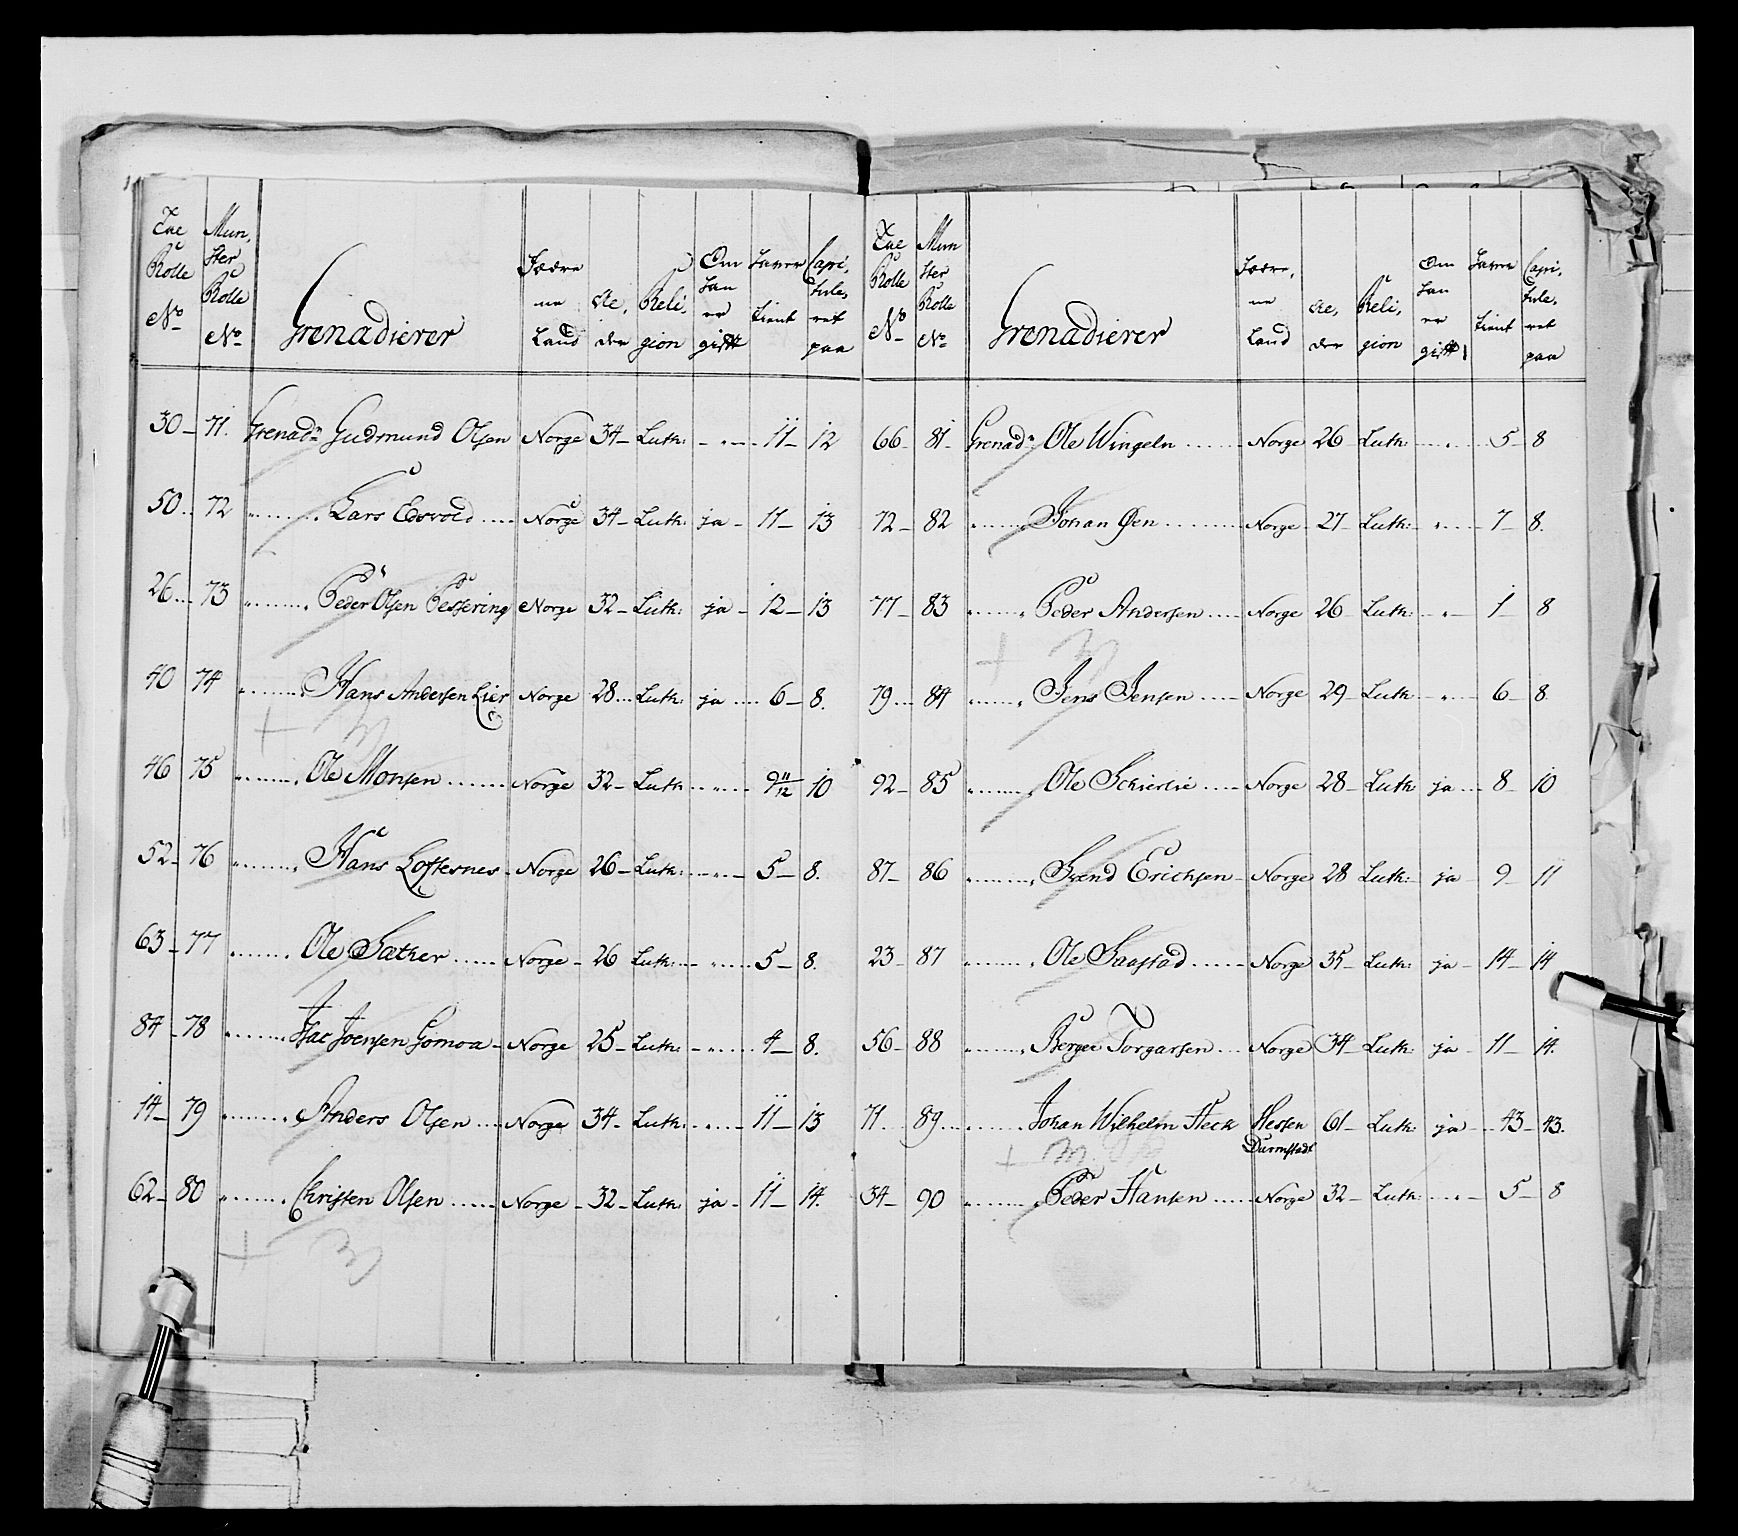 Rolle No Mun, ster Rolle No Grenadierer Fædre ne Land Al, der Reli, gion Om han er gift tient Capi, tule, ret paa
30 71. Grenadr Gudmund Olsen Norge 34 Luth: " 11 12
50 72 " Lars Edsvold Norge 34 Luth: ja 11 13
26 73 " Peder Olsen Norge 32 Luth: ja 12 13
40 74 " Hans Andersen Lier Norge 28 Luth: ja 6 8.
46 75 " Ole Monsen Norge 32 Luth " 9 11/12 10
52 76 " Hans Loftesnes Norge 26 Luth: " 5 8.
63 77 " Ole Sæther Norge 26 Luth: " 5 8.
84 78 " Isac Joensen Gomoa Norge 25 Luth: " 4 8.
14 79 " Anders Olsen Norge 34 Luth: " 11 13
62 80 " Christen Olsen Norge 32 Luth: ja 11 14.
Rolle No Mun ster Rolle No Grenadierer Fædre, ne Land Al, der Reli, gion Om han er gift tient Capi, tule, ret paa
66 81 Grenadr Ole Wingeln Norge 26 Luth: " 5 8
72 82 " Johan Øen Norge 27 Luth: " 7 8.
77 83 " Peder Andersen Norge 26 Luth: " 1 8
79 84 " Jens Jensen Norge 29 Luth " 6 8
92 85 " Ole Schierlie Norge 28 Luth ja 8 10
87 86 " Svend Erichsen Norge 28 Luth: ja 9 11
23 87 " Ole Saastad Norge 35 Luth: ja 14 14
56 88 " Børger Torgarsen Norge 34 Luth: ja 11 14.
71 89 " Johan Wilhelm Heck Hessen Darmstadt 61 Luth: ja 43 43.
34 90 " Peder Hansen Norge 32 Luth: " 5 8